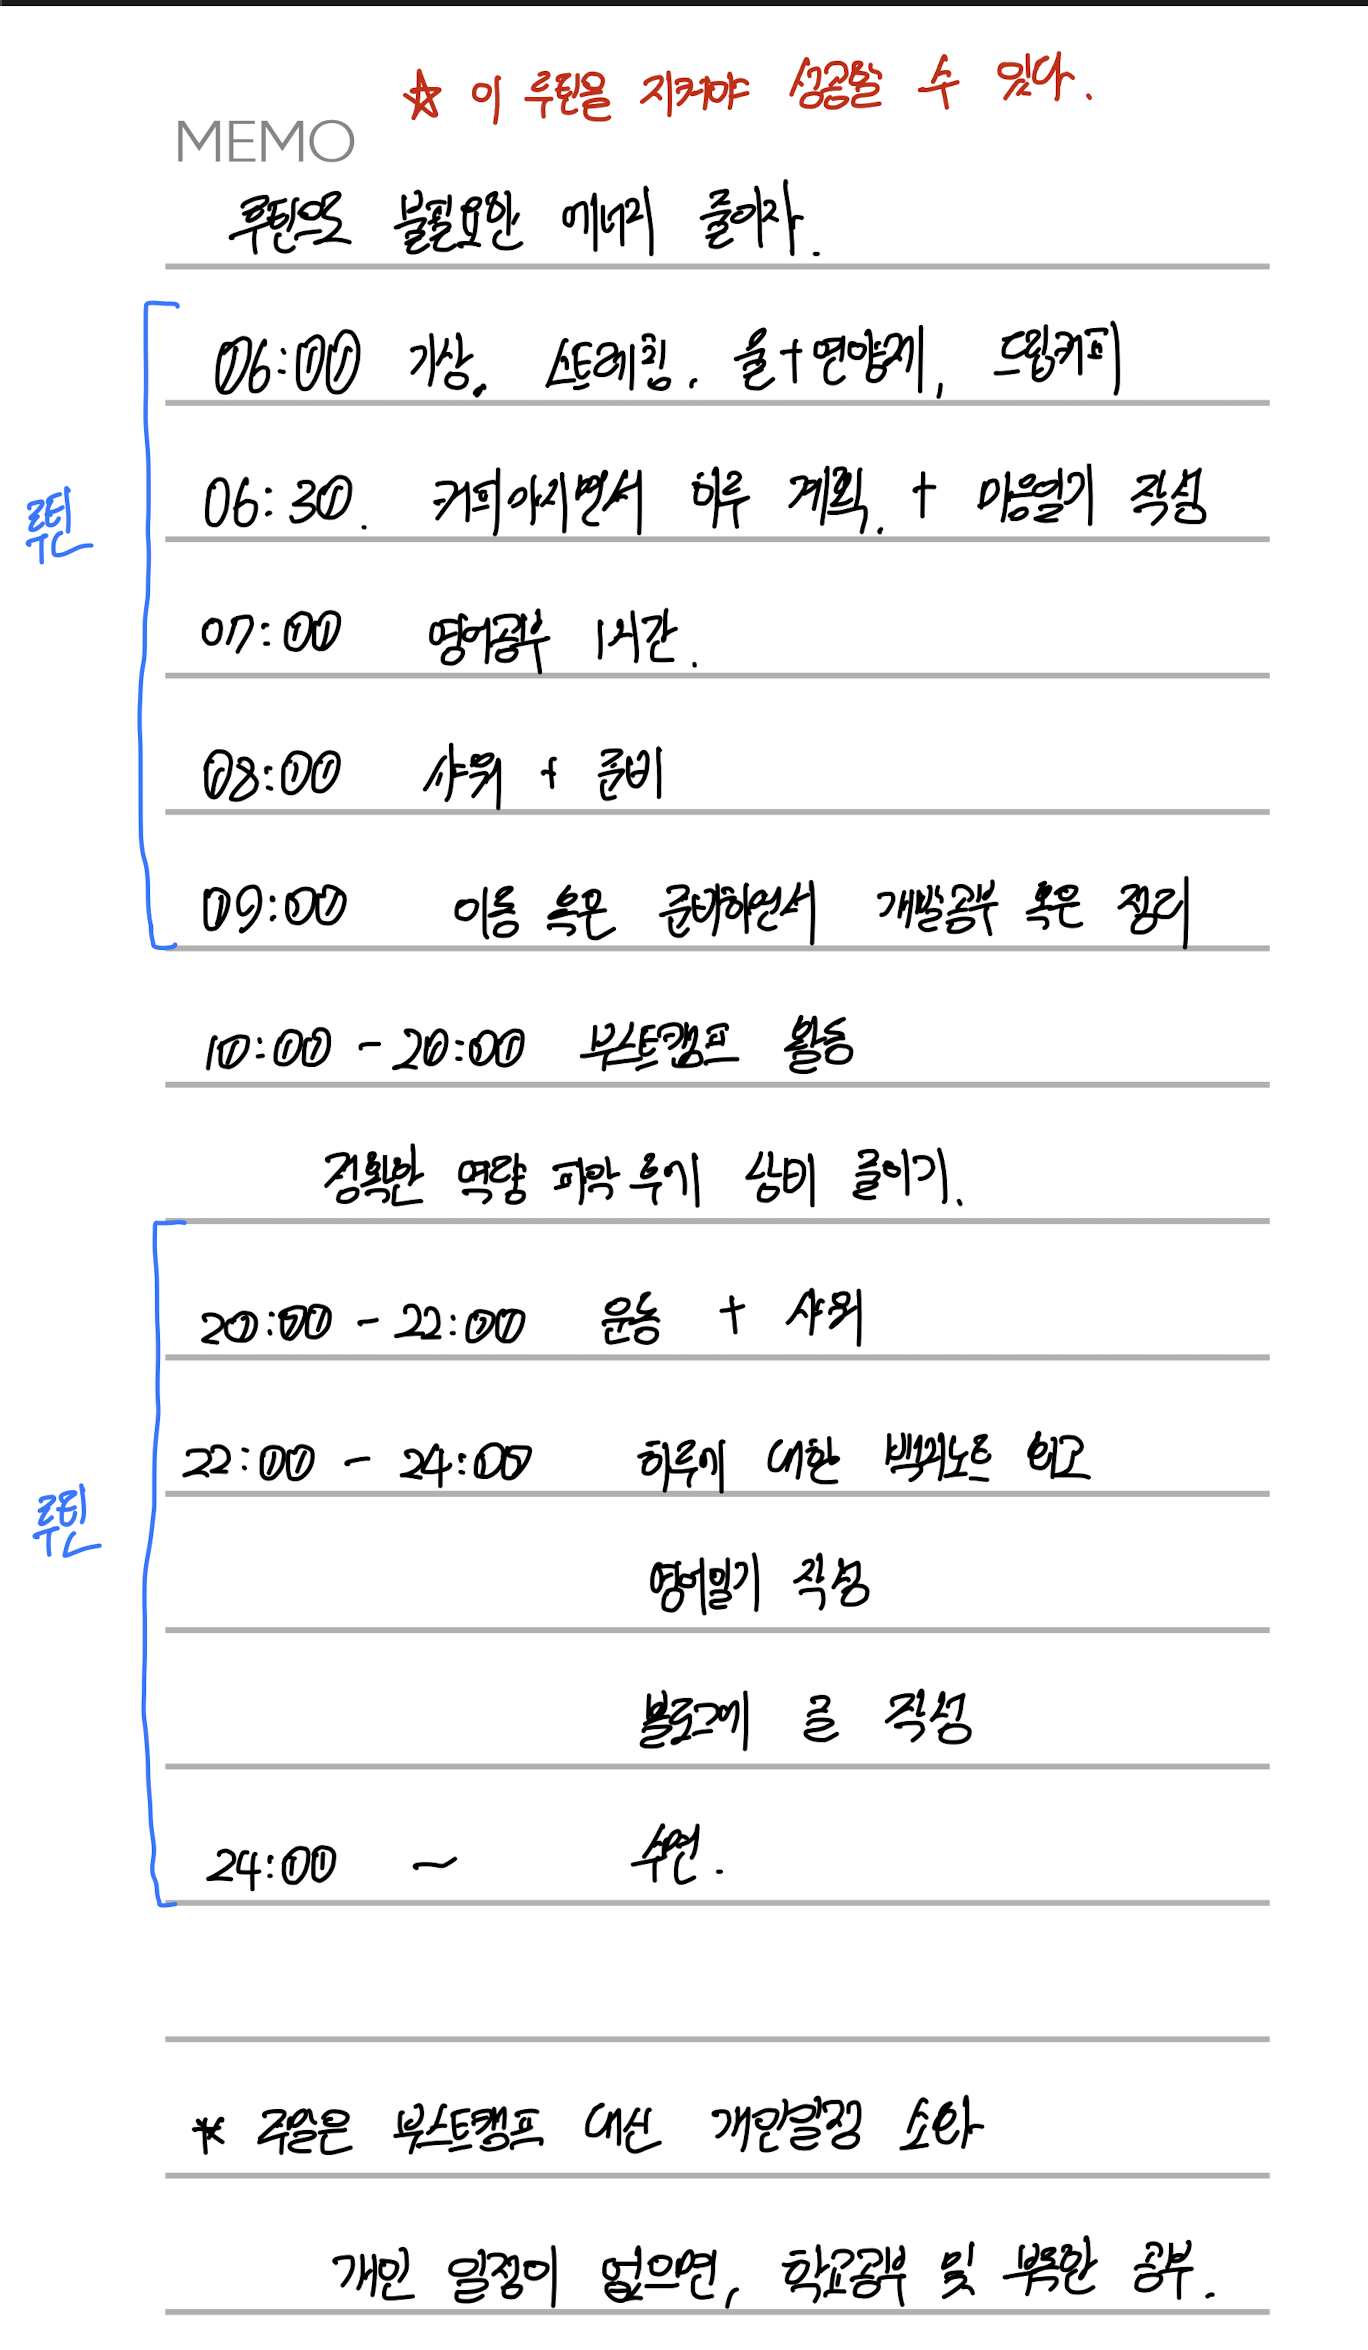 ★ 이 루틴을 지켜야 성공할 수 있다.
MEMO
루틴으로 불필요한 에너지 줄이자.
06:00 기상. 스트레칭. 물+영양제, 드립커피
루틴
06:30. 커피마시면서 하루 계획. + 마음일기 작성
07:00 영어공부 1시간.
08:00 샤워 + 준비
09:00 이동 혹은 준비하면서 개발공부 혹은 정리
10:00 - 20:00 부스트캠프 활동
정확한 역량 파악 후에 낭비 줄이기.
20:00 - 22:00 운동 + 샤워
22:00 - 24:00 하루에 대한 백지노트 회고
루틴
영어일기 작성
블로그에 글 작성
24:00 ~ 수면.
* 주일은 부스트캠프 대신 개인일정 소화
개인 일정이 없으면, 학교공부 및 부족한 공부.